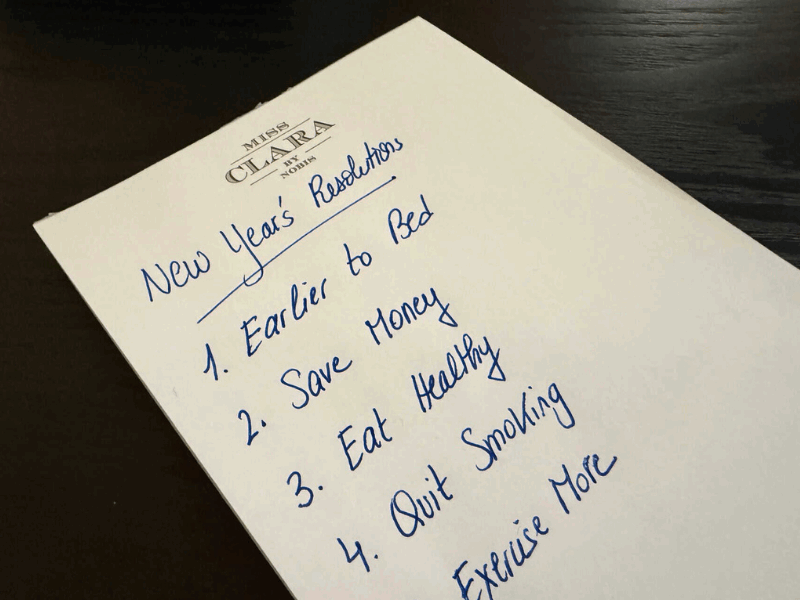 MISS
CLARA
BY
NOBIS
New Year's Resolutions
1. Earlier to Bed
2. Save Money
3. Eat Healthy
4. Quit Smoking
Exercise More